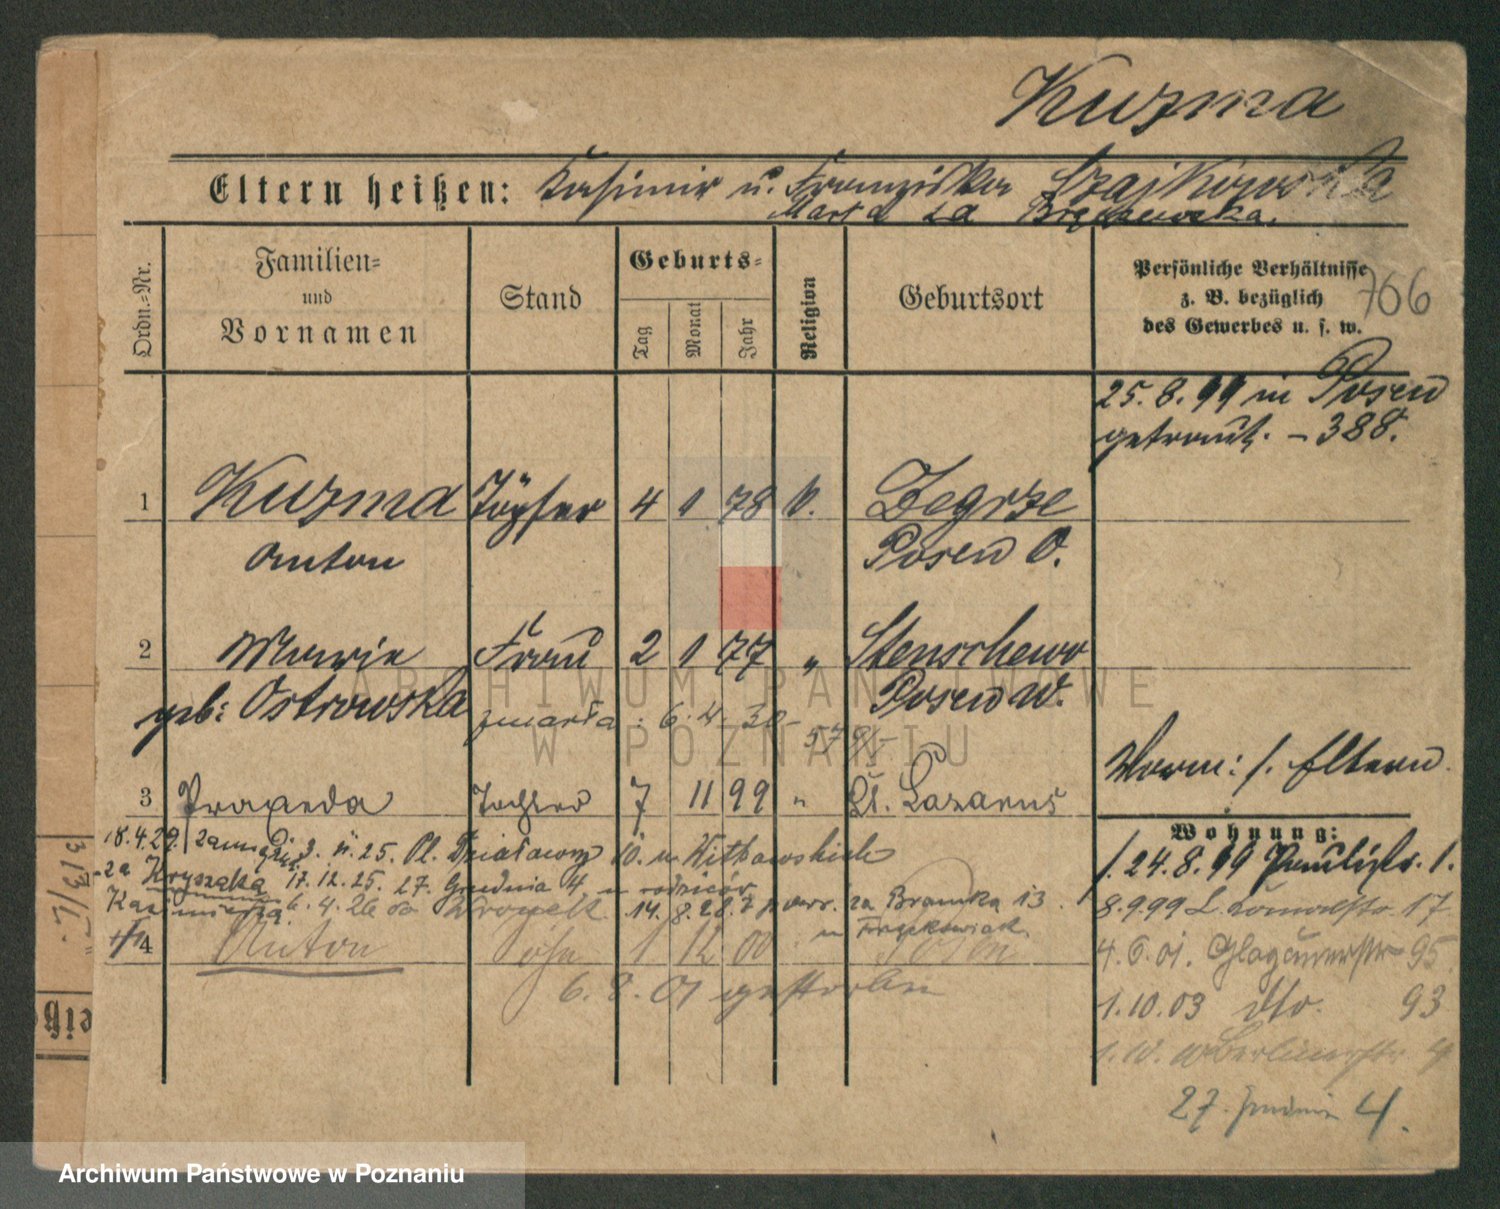 Kuzma
Eltern heißen: Kasimir u. Franziska Szajkowska
Marta za
Ordn.=Nr.
Familien=
und
Vornamen
Stand
Geburts=
Tag
Monat
Jahr
Religion
Geburtsort
Persönliche Verhältnisse
z. B. bezüglich
des Gewerbes u. s. w.
766
25.8.99 in Posen
getraut. – 388.
1 Kuzma Töpfer 4 1 78 k. Zegrze
Anton Posen O.
2 Marie Frau 2 1 77 „ Stenschewo
geb: Ostrowska zmarła: 6.4.30 – Posen W.
578
Vorm: s. Eltern
3 Praxeda Tochter 7 11 99 „ St. Lazarus
Wohnung:
18.4.29. 3. 11. 25. Pl. Działowy 10. u Witkowskich
1. 24.8.99 Paulistr. 1.
za Kryszaka 17.12.25. 27. Grudnia 4 u rodziców
Kazimierza. 6.4.26 do Wronek 14.8.28. za Bramka 13.
8.9.99 L. 17
u
4 Anton Sohn 1 12 00 Posen
4.6.01. Glogauerstr 95
6.8.01 gestorben
1.10.03 dto. 93
Berlinerstr
27. Grudnia 4.
Archiwum Państwowe w Poznaniu
ARCHIWUM PAŃSTWOWE
W POZNANIU